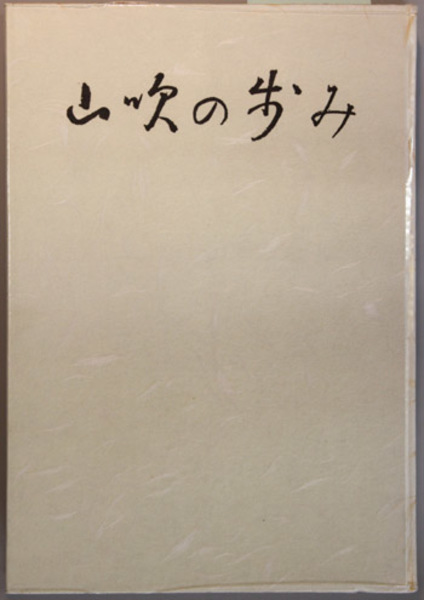 山吹の歩み